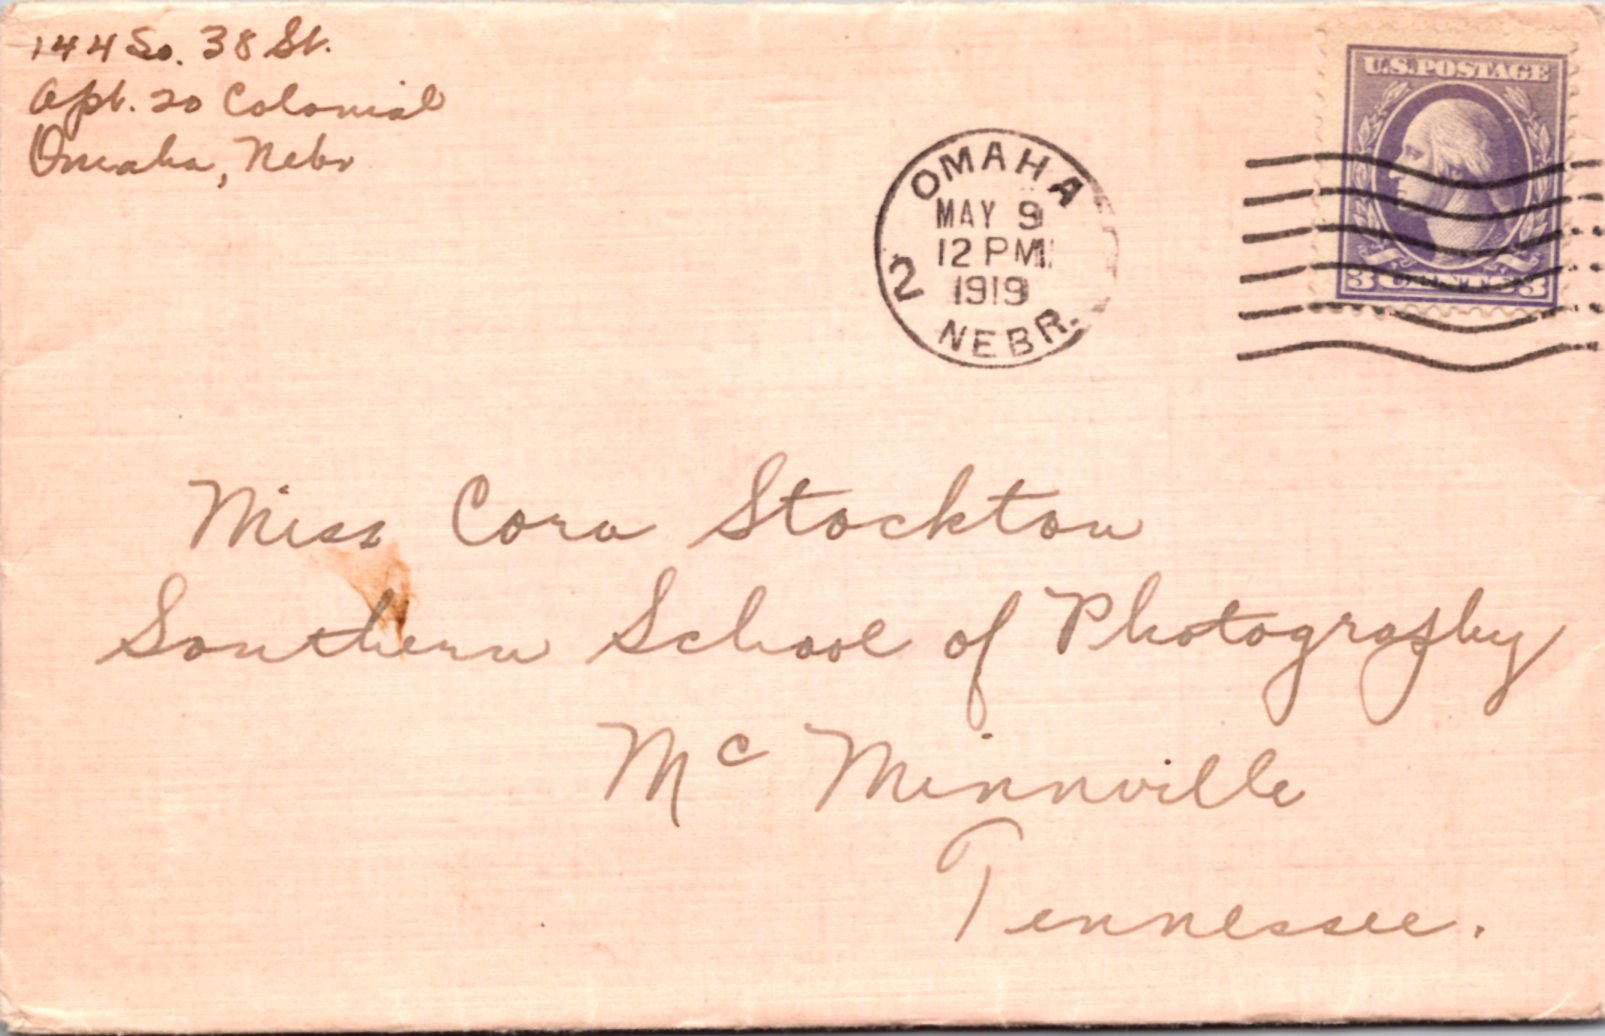 144 So. 38 St.
Apt. 20 Colonial
Omaha, Nebr
OMAHA
MAY 9
12 PM
1919
2
NEBR.
U.S. POSTAGE
3 CENTS 3
Miss Cora Stockton
Southern School of Photography
Mc Minnville
Tennessee.